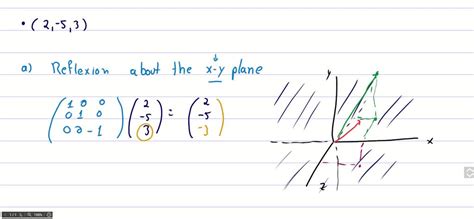 • (2,-5,3)
a) Reflexion about the x-y plane
( 1 0 0 ) ( 2 ) = ( 2 )
( 0 1 0 ) ( -5 ) ( -5 )
( 0 0 -1 ) ( 3 ) ( -3 )
y
x
z